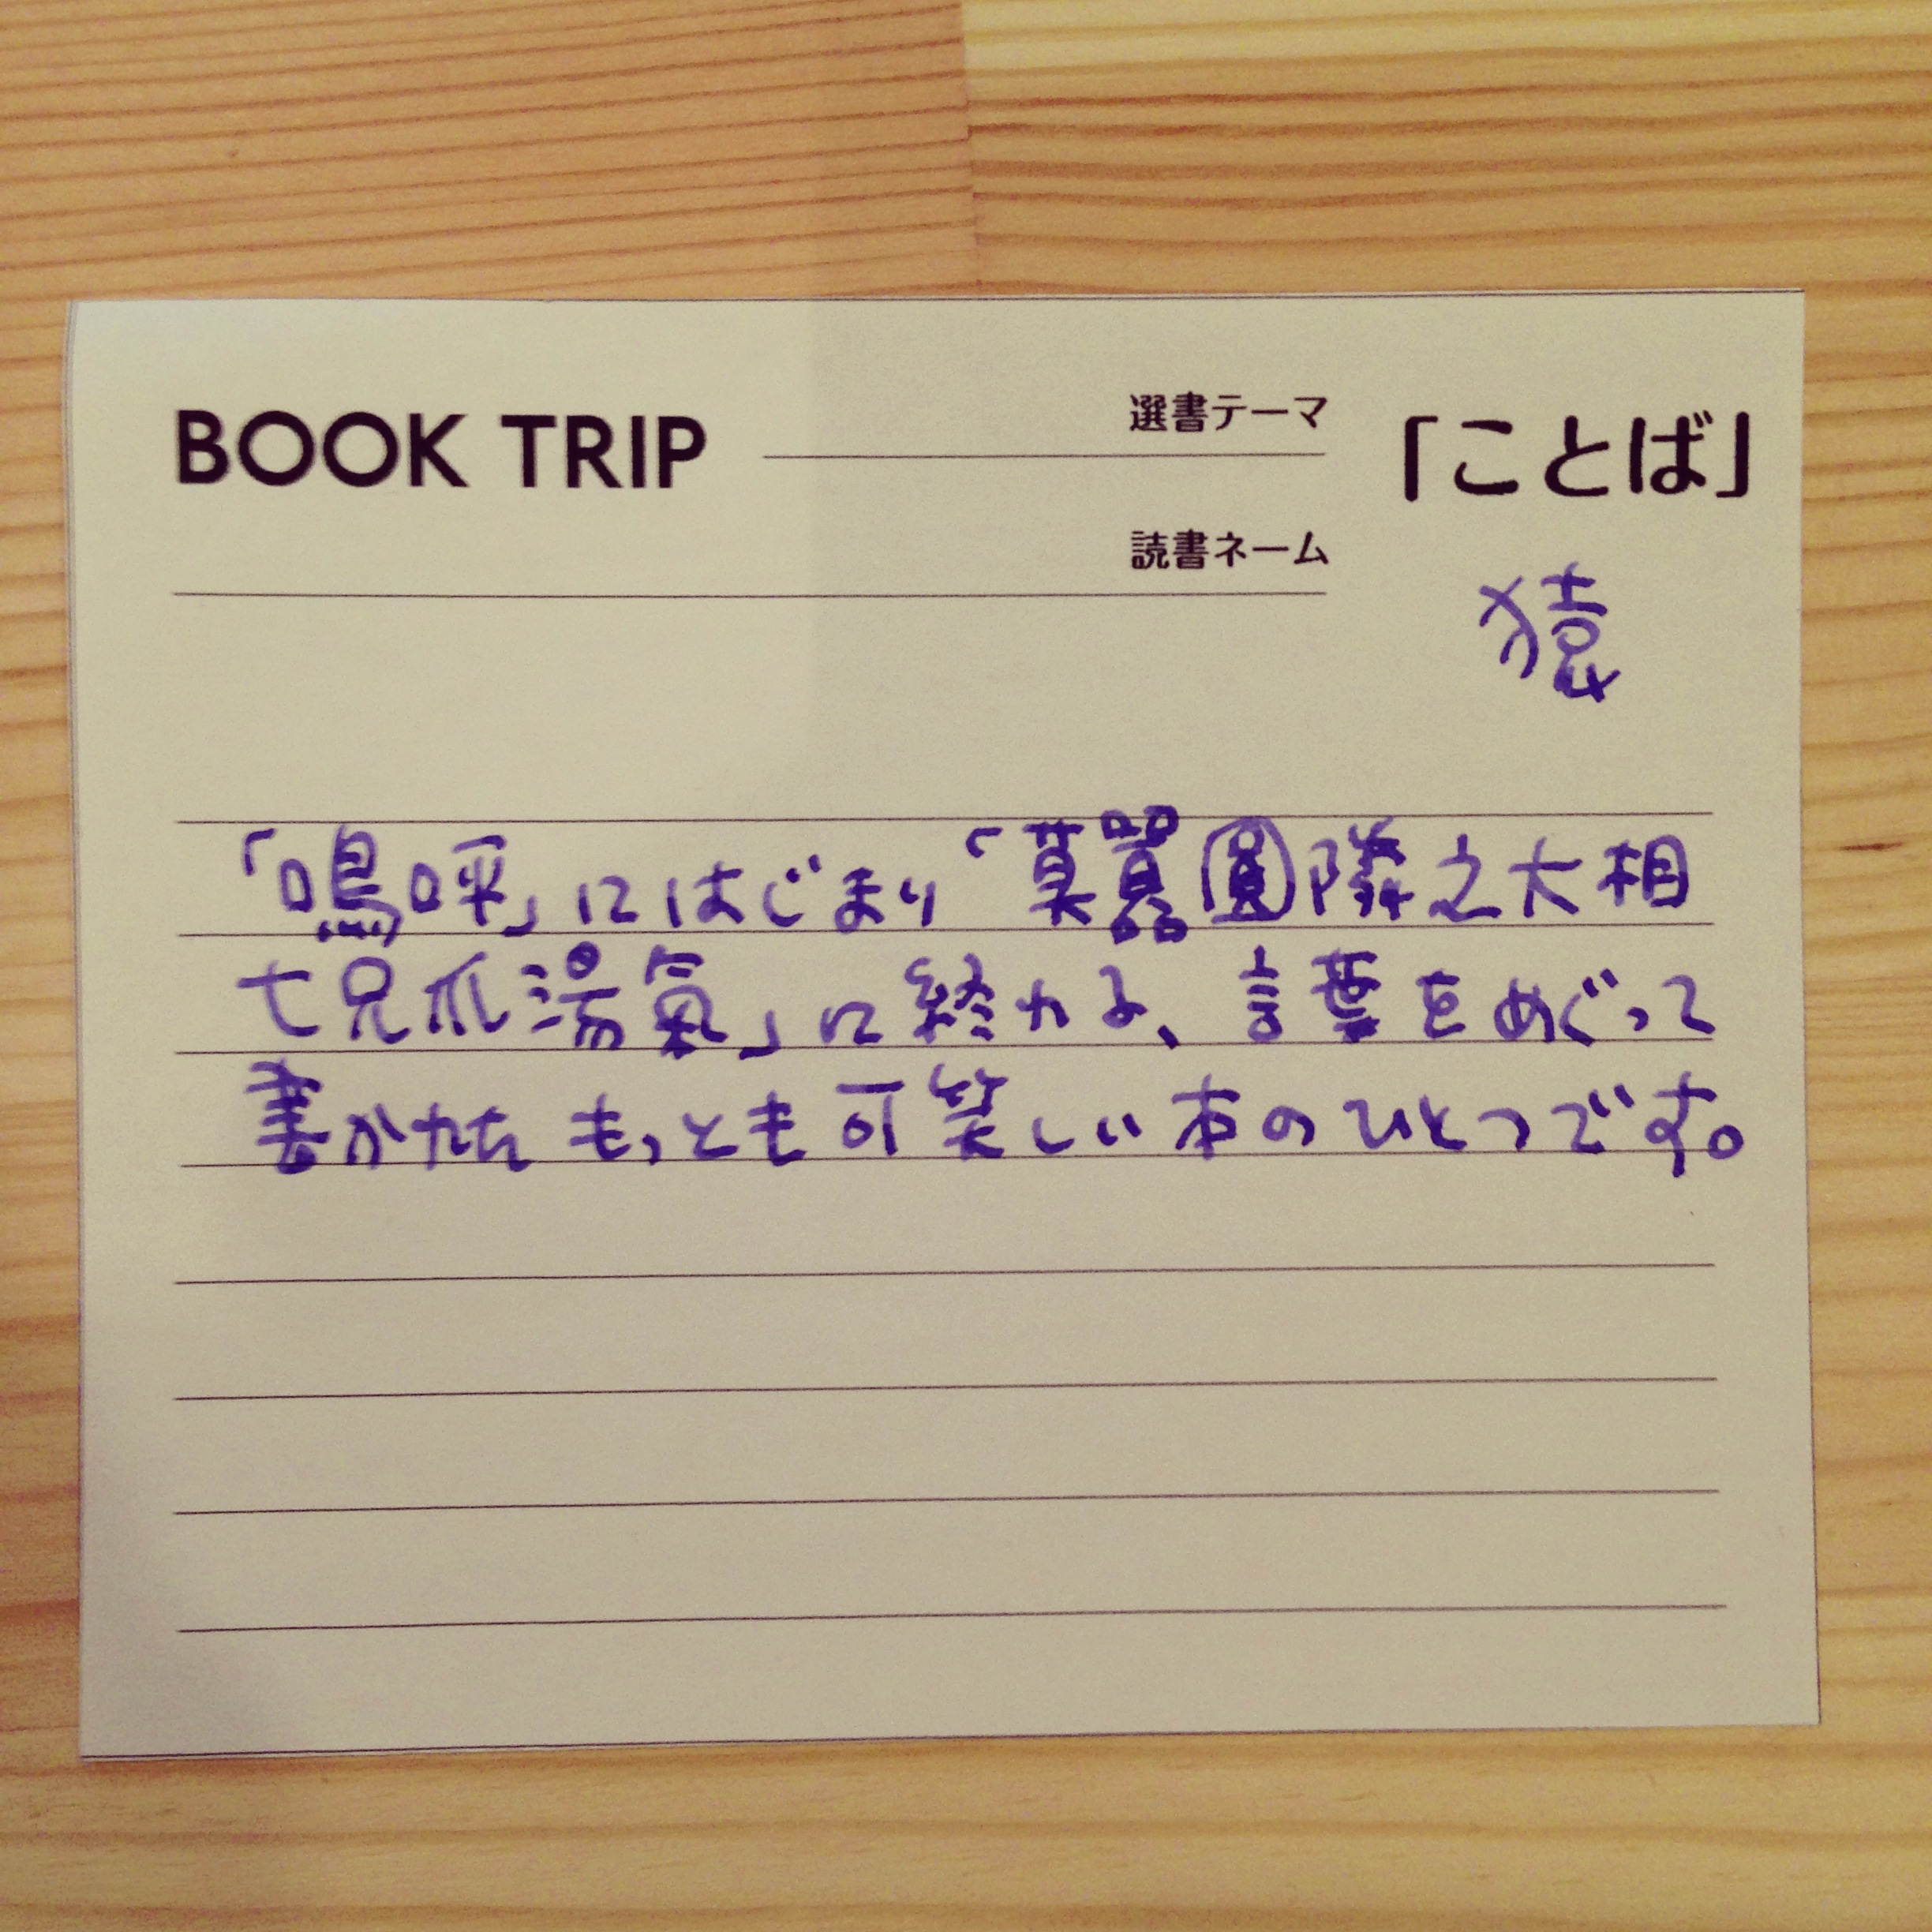 BOOK TRIP
選書テーマ 「ことば」
読書ネーム 猿
「嗚呼」にはじまり「莫囂圓隣之大相
七兄爪湯氣」に終わる、言葉をめぐって
書かれたもっとも可笑しい本のひとつです。